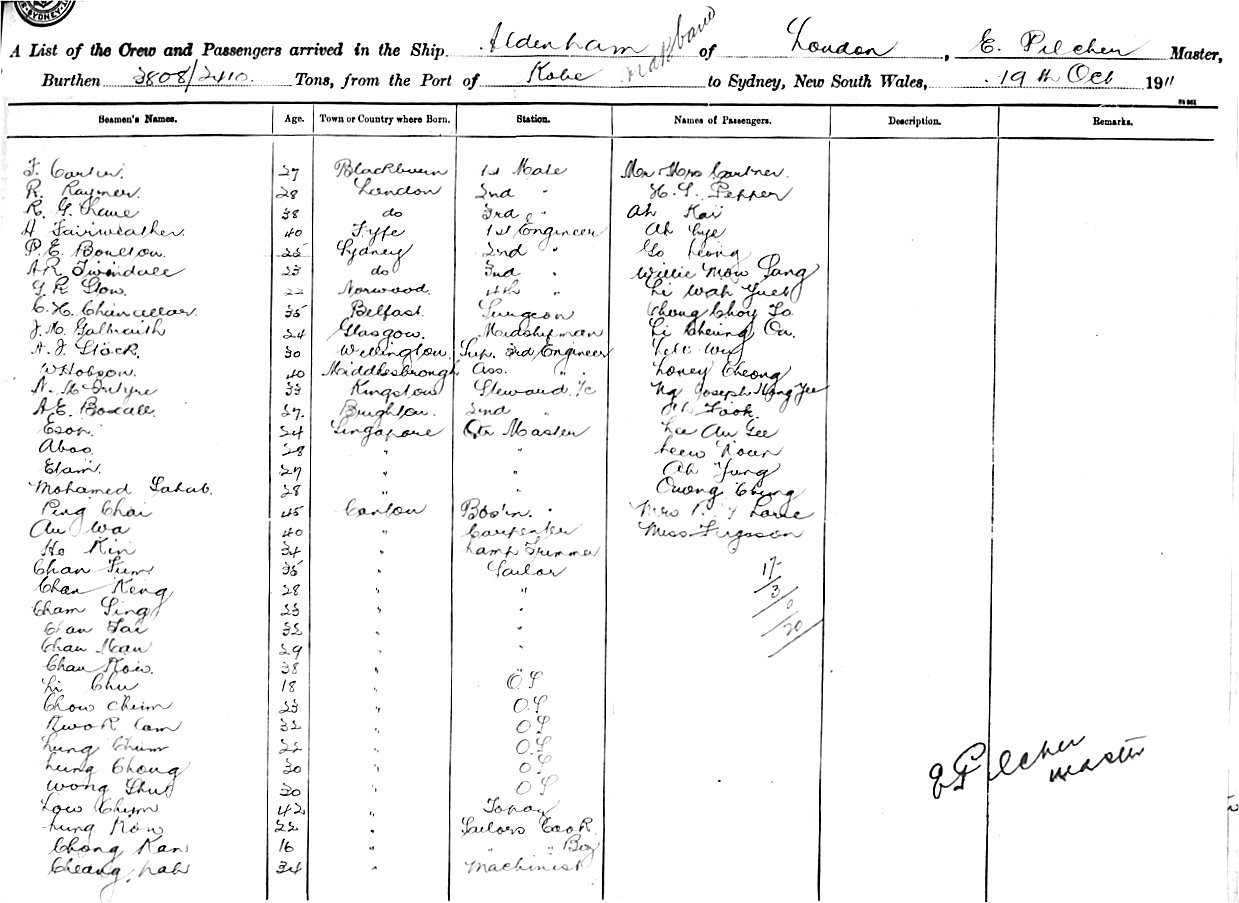 SYDNEY
A List of the Crew and Passengers arrived in the Ship Aldenham of London, E. Pilcher Master,
Burthen 3808/2410 Tons, from the Port of Kobe to Sydney, New South Wales, 19th Oct 1911
Seamen's Names. Age. Town or Country where Born. Station. Names of Passengers. Description. Remarks.
27 Blackburn 1st Mate Mr Mrs Cartner.
R. Rayner. 28 London 2nd " H. S. Pepper
R. G. 38 do 3rd " Ah Kai
A Fairweather. 40 Fyfe 1st Engineer Ah
P. E. Boulton. 25 Sydney 2nd " Go Leong
A. R. Twindale 23 do 3rd " Willie Mow Sang
G. R. Stow. 22 Norwood. 4th " Li Wah Yuet
C. H. Chancellor. 35 Belfast. Surgeon Chong Choy
J. M. Galbraith 24 Glasgow. Midshipman Li Cheung On.
A. J. Stock. 30 Wellington. Sup. 3rd Engineer
W Hobson. 40 Middlesbrough Ass. " " Loney Cheong
N. McIntyre 33 Kingston Steward I/C Ng Joseph Hong Yee
A. E. Boxall. 37 Brighton. 2nd " Fook.
Esop. 24 Singapore Qtr Master Lee Au Gee
Aboo. 28 " "
Elam. 27 " " Ah Yung
Mohamed Sahab. 28 " " Quong Chung
Ping Chai 45 Canton Bos'n. " Mrs
Au Wa 40 " Carpenter Miss Ferguson
Ho Kin 34 " Lamp Trimmer
Chan Fum 35 " Sailor 17
Chan Keng 28 " " 3
Cham Sing 23 " " 0
Chan Tai 32 " " 20
Chan Man 29 " "
Chan Kow. 38 " "
Li Chu 18 " O.S
Chow Cheim 23 " O.S
Kwok Cam 32 " O.S
Lung Chum 22 " O.S
Lung Chong 30 " O.S
Wong Shut 30 " O S
Low Chum 42 " Topaz
Lung Kon 22 " Sailors Cook.
Chong Kan 16 " " Boy
Cheang Wah 34 " Machinist
E Pilcher
master